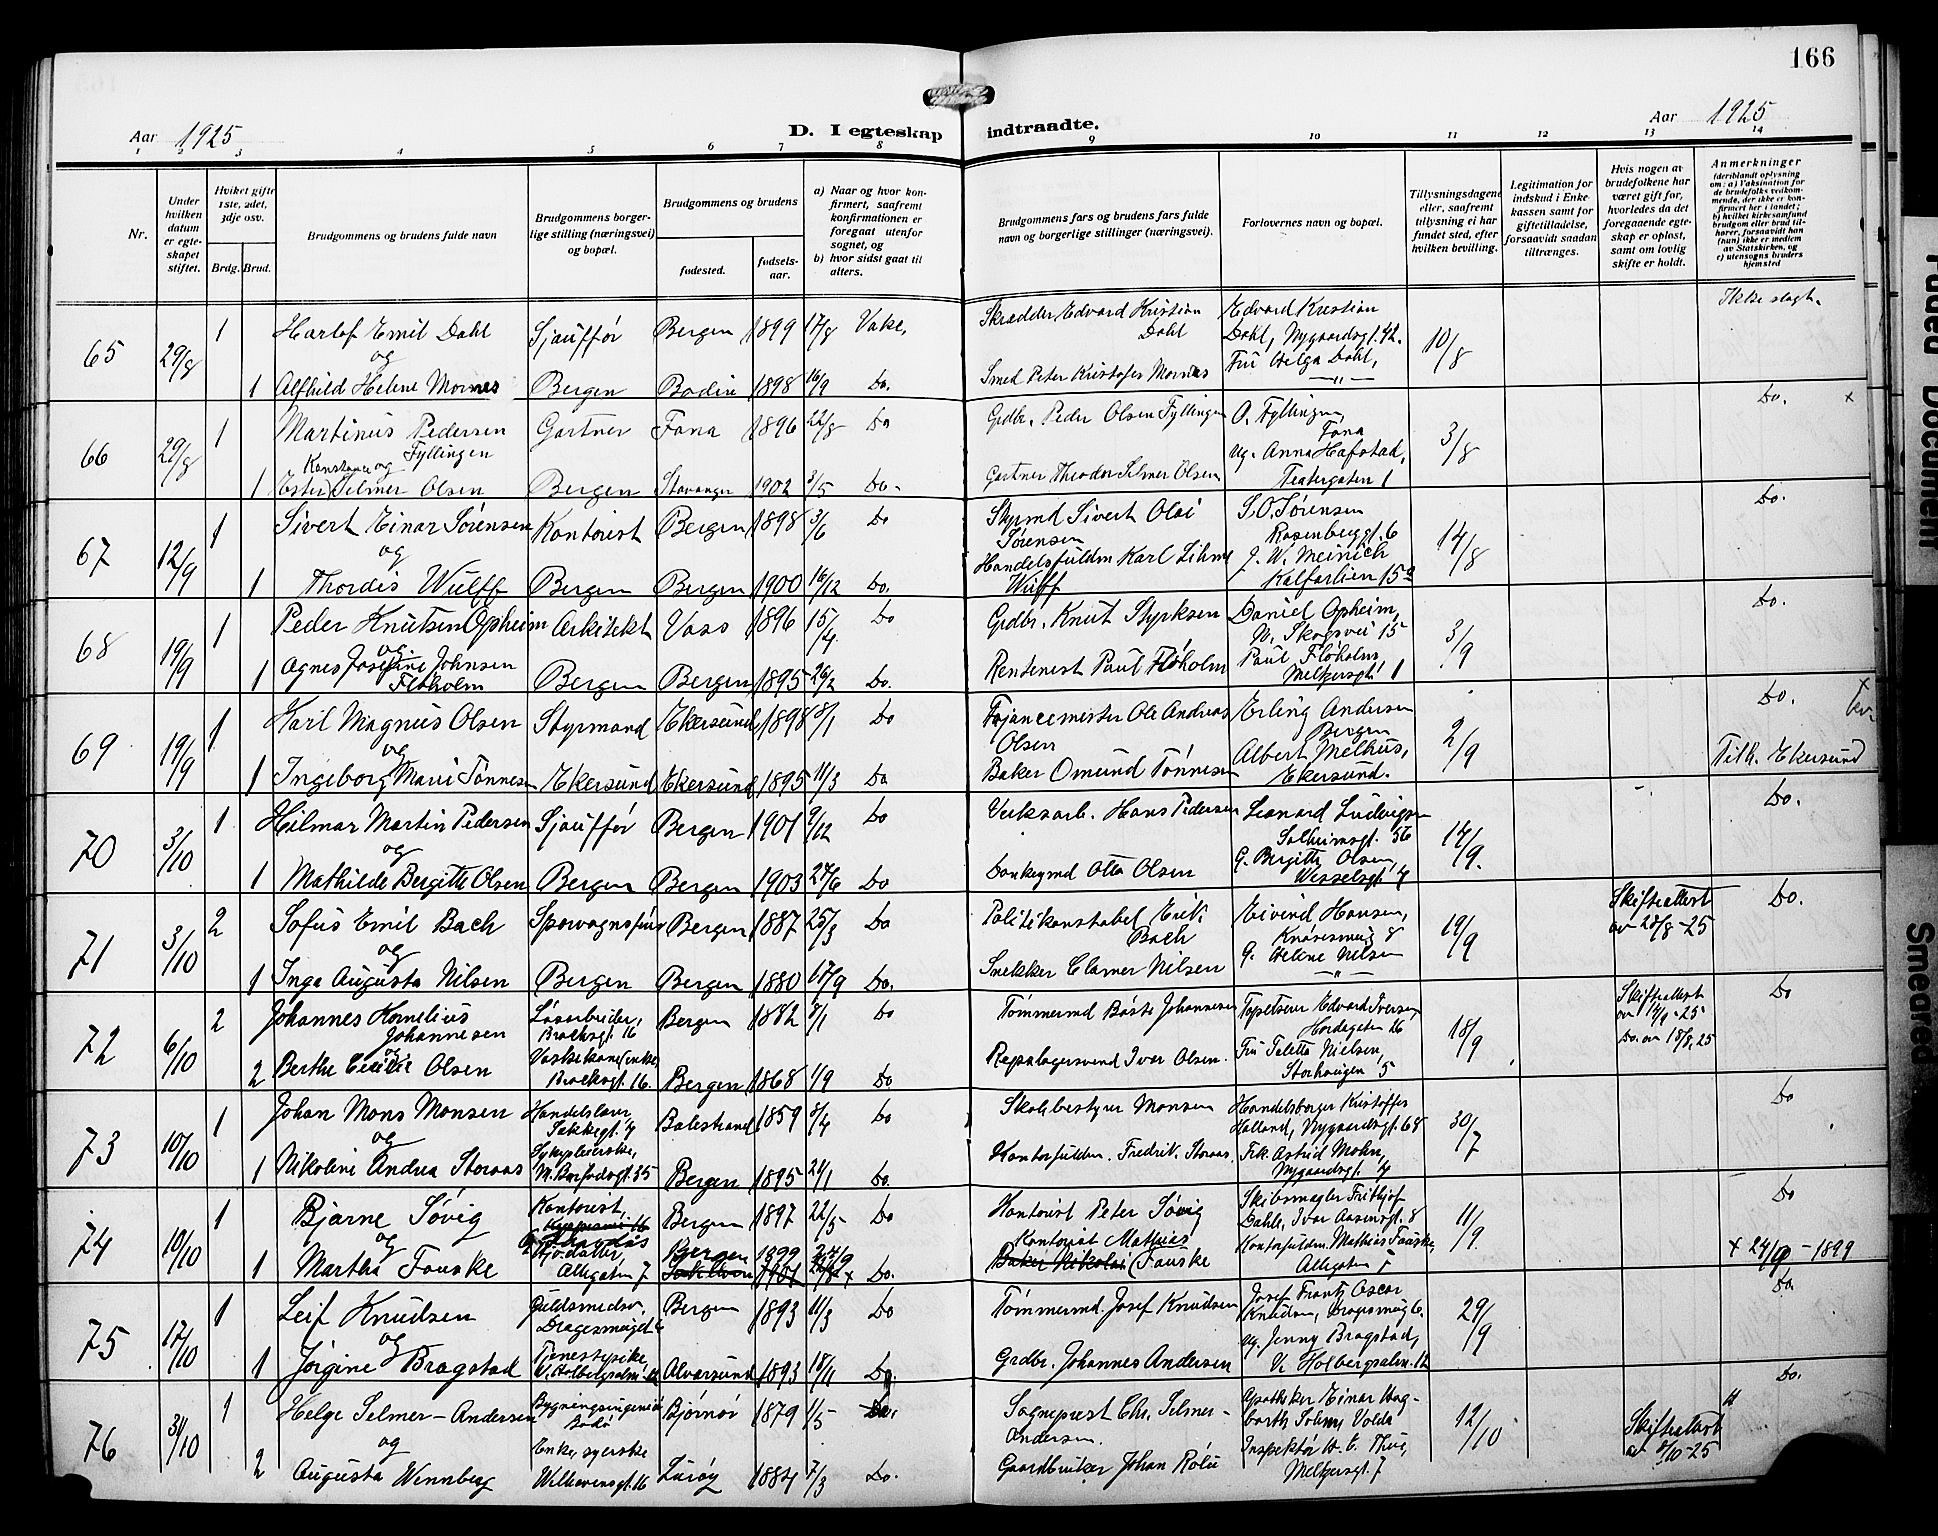 166
Aar 1925
D. I egteskap indtraadte.
Aar 1925
1 2 3 4 5 6 7 8 9 10 11 12 13 14
Nr.
Under hvilken datum er egteskapet stiftet.
Hvilket gifte 1ste, 2det, 3dje osv.
Brdg. Brud.
Brudgommens og brudens fulde navn
Brudgommens borgerlige stilling (næringsvei) og bopæl.
Brudgommens og brudens
fødested.
fødselsaar.
a) Naar og hvor konfirmert, saafremt konfirmationen er foregaat utenfor sognet, og
b) hvor sidst gaat til alters.
Brudgommens fars og brudens fars fulde navn og borgerlige stillinger (næringsvei).
Forlovernes navn og bopæl.
Tillysningsdagene eller, saafremt tillysning ei har fundet sted, efter hvilken bevilling.
Legitimation for indskud i Enkekassen samt for giftetilladelse, forsaavidt saadan tiltrænges.
Hvis nogen av brudefolkene har været gift før, hvorledes da det foregaaende egteskap er opløst, samt om lovlig skifte er holdt.
Anmerkninger (deriblandt oplysning om: a) Vaksination for de brudefolks vedkommende, der ikke er konfirmert her i landet; b) hvilket kirkesamfund brudgom eller brud tilhører, forsaavidt han (hun) ikke er medlem av Statskirken, og c) utensogns bruders hjemsted
65 29/8 1 Harlof Emil Dahl Sjauffør Bergen 1899 17/8 Skrædder Edvard Kristian Dahl Edvard Kristian Dahl, Nygaardsgt. 42. 10/8 Ikke slegt.
og Fru Helga Dahl,
1 Alfhild Helene Mornes Bergen Bodin 1898 16/9 Do. Smed Peter Kristofer Mornes —"—
66 29/8 1 Martinus Pedersen Fyllingen Gartner Fana 1896 22/8 Do Grdbr. Peder Olsen Fyllingen O. Fyllingen, Fana 3/8 Do. x
og Ug. Anna Hafstad,
1 Ester Konstance Selmer Olsen Bergen Stavanger 1902 3/5 Do. Gartner Theodor Selmer Olsen Teatergaten 1
67 12/9 1 Sivert Einar Sørensen Kontorist Bergen 1898 3/6 Do Styrmd Sivert Olai Sørensen S. O. Sørensen Rosenberggt. 6 14/8 Do.
og J. W. Meinich
1 Thordis Wulff Bergen Bergen 1900 16/12 Do. Handelsfuldm Karl Lihme Wulff Kalfarlien 15a
68 19/9 1 Peder Knutsen Opheim Arkitekt Voss 1896 15/4. Do Grdbr. Knut Styrksen Daniel Opheim, N. Skogsvei 15 3/9 Do.
og
1 Agnes Josefine Johnsen Fløholm Bergen Bergen 1895 26/2 Do. Rentenist Paul Fløholm Paul Fløholm Meltzersgt. 1
69 19/9 1 Karl Magnus Olsen Styrmand Ekersund 1898 8/1 Do Fajancemester Ole Andreas Olsen Erling Andersen Bergen 2/9 Do. x
og
1 Ingeborg Marie Tønnesen Ekersund Ekersund 1895 11/3 Do Baker Omund Tønnesen Albert Melhus, Ekersund. Tilh. Ekersund
70 3/10 1 Hilmar Martin Pedersen Sjauffør Bergen 1901 9/12 Do Verksarb. Hans Pedersen Leonard Ludvigsen Solheimsgt. 56 14/9. Do.
og
1 Mathilde Bergitte Olsen Bergen Bergen 1903 27/6 Do Donkeymd Otto Olsen G. Bergitte Olsen, Wesselsgt. 4
71 3/10 2 Sofus Emil Bach Sporvognsfører Bergen 1887 25/3 Do Politikonstabel Erik Bach Eivind Hansen, Knøsesmug 8 19/9 Skifteattest av 28/8-25 Do.
og
1 Inga Augusta Nilsen Bergen Bergen 1880 17/9 Do. Snekker Clamer Nilsen G. Helene Nilsen —"—
72 6/10 2 Johannes Kornelius Johannesen Løsarbeider, Brattsgt. 16 Bergen 1882 8/1 Do Tømmermd Børte Johannesen Tapetserer Edvard Iversen Hordagaten 26 18/9 Skifteattest av 14/9-25 Do
og
2 Berthe Cecilie Olsen Vaskekone, enke, Brattsgt. 16. Bergen 1868 1/9 Do Repslagersvend Ivar Olsen. Fru Teletta Nielsen, Storhaugen 5 Do. av 18/8.25
73 10/10 1 Johan Mons Monsen Balestrand 1859 8/4 Do Skolebestyrer Monsen Handelsborger Kristoffer Holland, Nygaardsgt. 68 30/7 Do
og
1 Nikoline Andrea Storaas Sykepleierske, Bergen 1895 24/1 Do. Kontorfuldm. Fredrik Storaas Frk. Astrid Mohn, Nygaardsgt. 4
74 10/10 1 Bjarne Søvig Kontorist, Bergen 1897 22/5 Do Kontorist Peter Søvig Skibsmægler Frithjof Dahle, Ivar Aasensgt. 8 11/9. Do
og
1 Martha Fauske Allegaten 7 Bergen 1899 Do. Kontorist Mathias Fauske Kontorfuldm. Mathias Fauske, Allegaten 5 x 24/9 - 1899
75 17/10 1 Leif Knudsen Guldsmedsv. Dragesmuget 6 Bergen 1893 11/3 Do Tømmermd. Josef Knudsen Josef Frantz Oscar Knudsen, Dragesmug 6. 29/9 Do.
og
1 Jørgine Bragstad Tjenestepike, Alversund 1893 18/11 Do. Grdbr. Johannes Andersen Ug. Jenny Bragstad, V. Holbergsalm. 12
76 31/10 1 Helge Selmer-Andersen Bygningsingeniør Bodø Bjørnør 1879 1/5 Do. Sogneprest Chr. Selmer-Andersen. Apotheker Einar Hagbarth Sohm, Volda 12/10 Do.
og
2 Augusta Wennberg Enke, syerske Welhavensgt. 16 Lurøy 1884 7/3 Do. Gaardbruker Johan Rölü Inspektør H. E. Thue, Meltzersgt. 7 Skifteattest av 8/10-25
Faded Document
Smeared